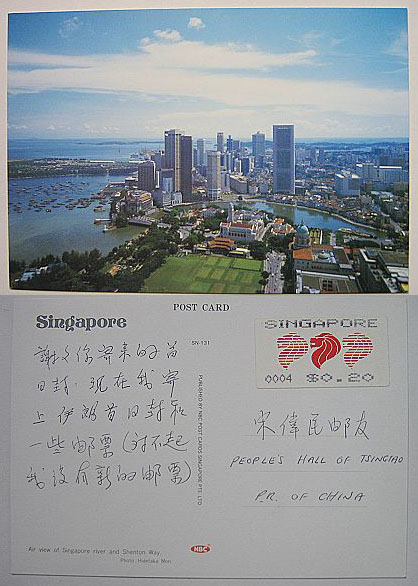 POST CARD
Singapore
SN-131
SINGAPORE
0004 $0.20
謝々你寄来的首
日封. 现在我寄
上伊朗首日封和
一些邮票(对不起
我没有新的邮票)
PUBLISHED BY NBC POST CARDS SINGAPORE PTE LTD
宋偉民邮友
PEOPLE'S HALL OF TSINGTAO
P.R. OF CHINA
Air view of Singapore river and Shenton Way.
NBC